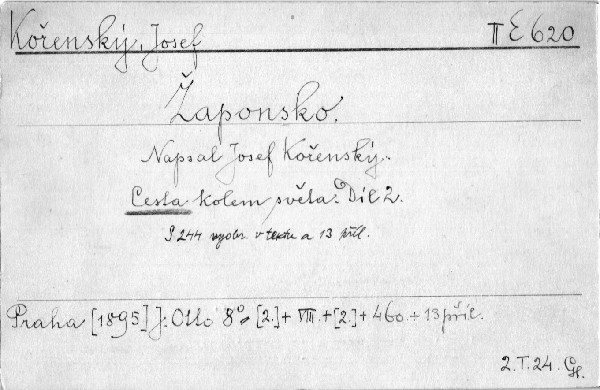 Kořenský, Josef II E 620
Žaponsko.
Napsal Josef Kořenský.
Cesta kolem světa. Díl 2.
S 244 vyobr. v textu a 13 příl.
Praha [1895] J. Otto 8° [2.] + VIII. + [2.] + 460. + 13 příl.
2. T. 24.